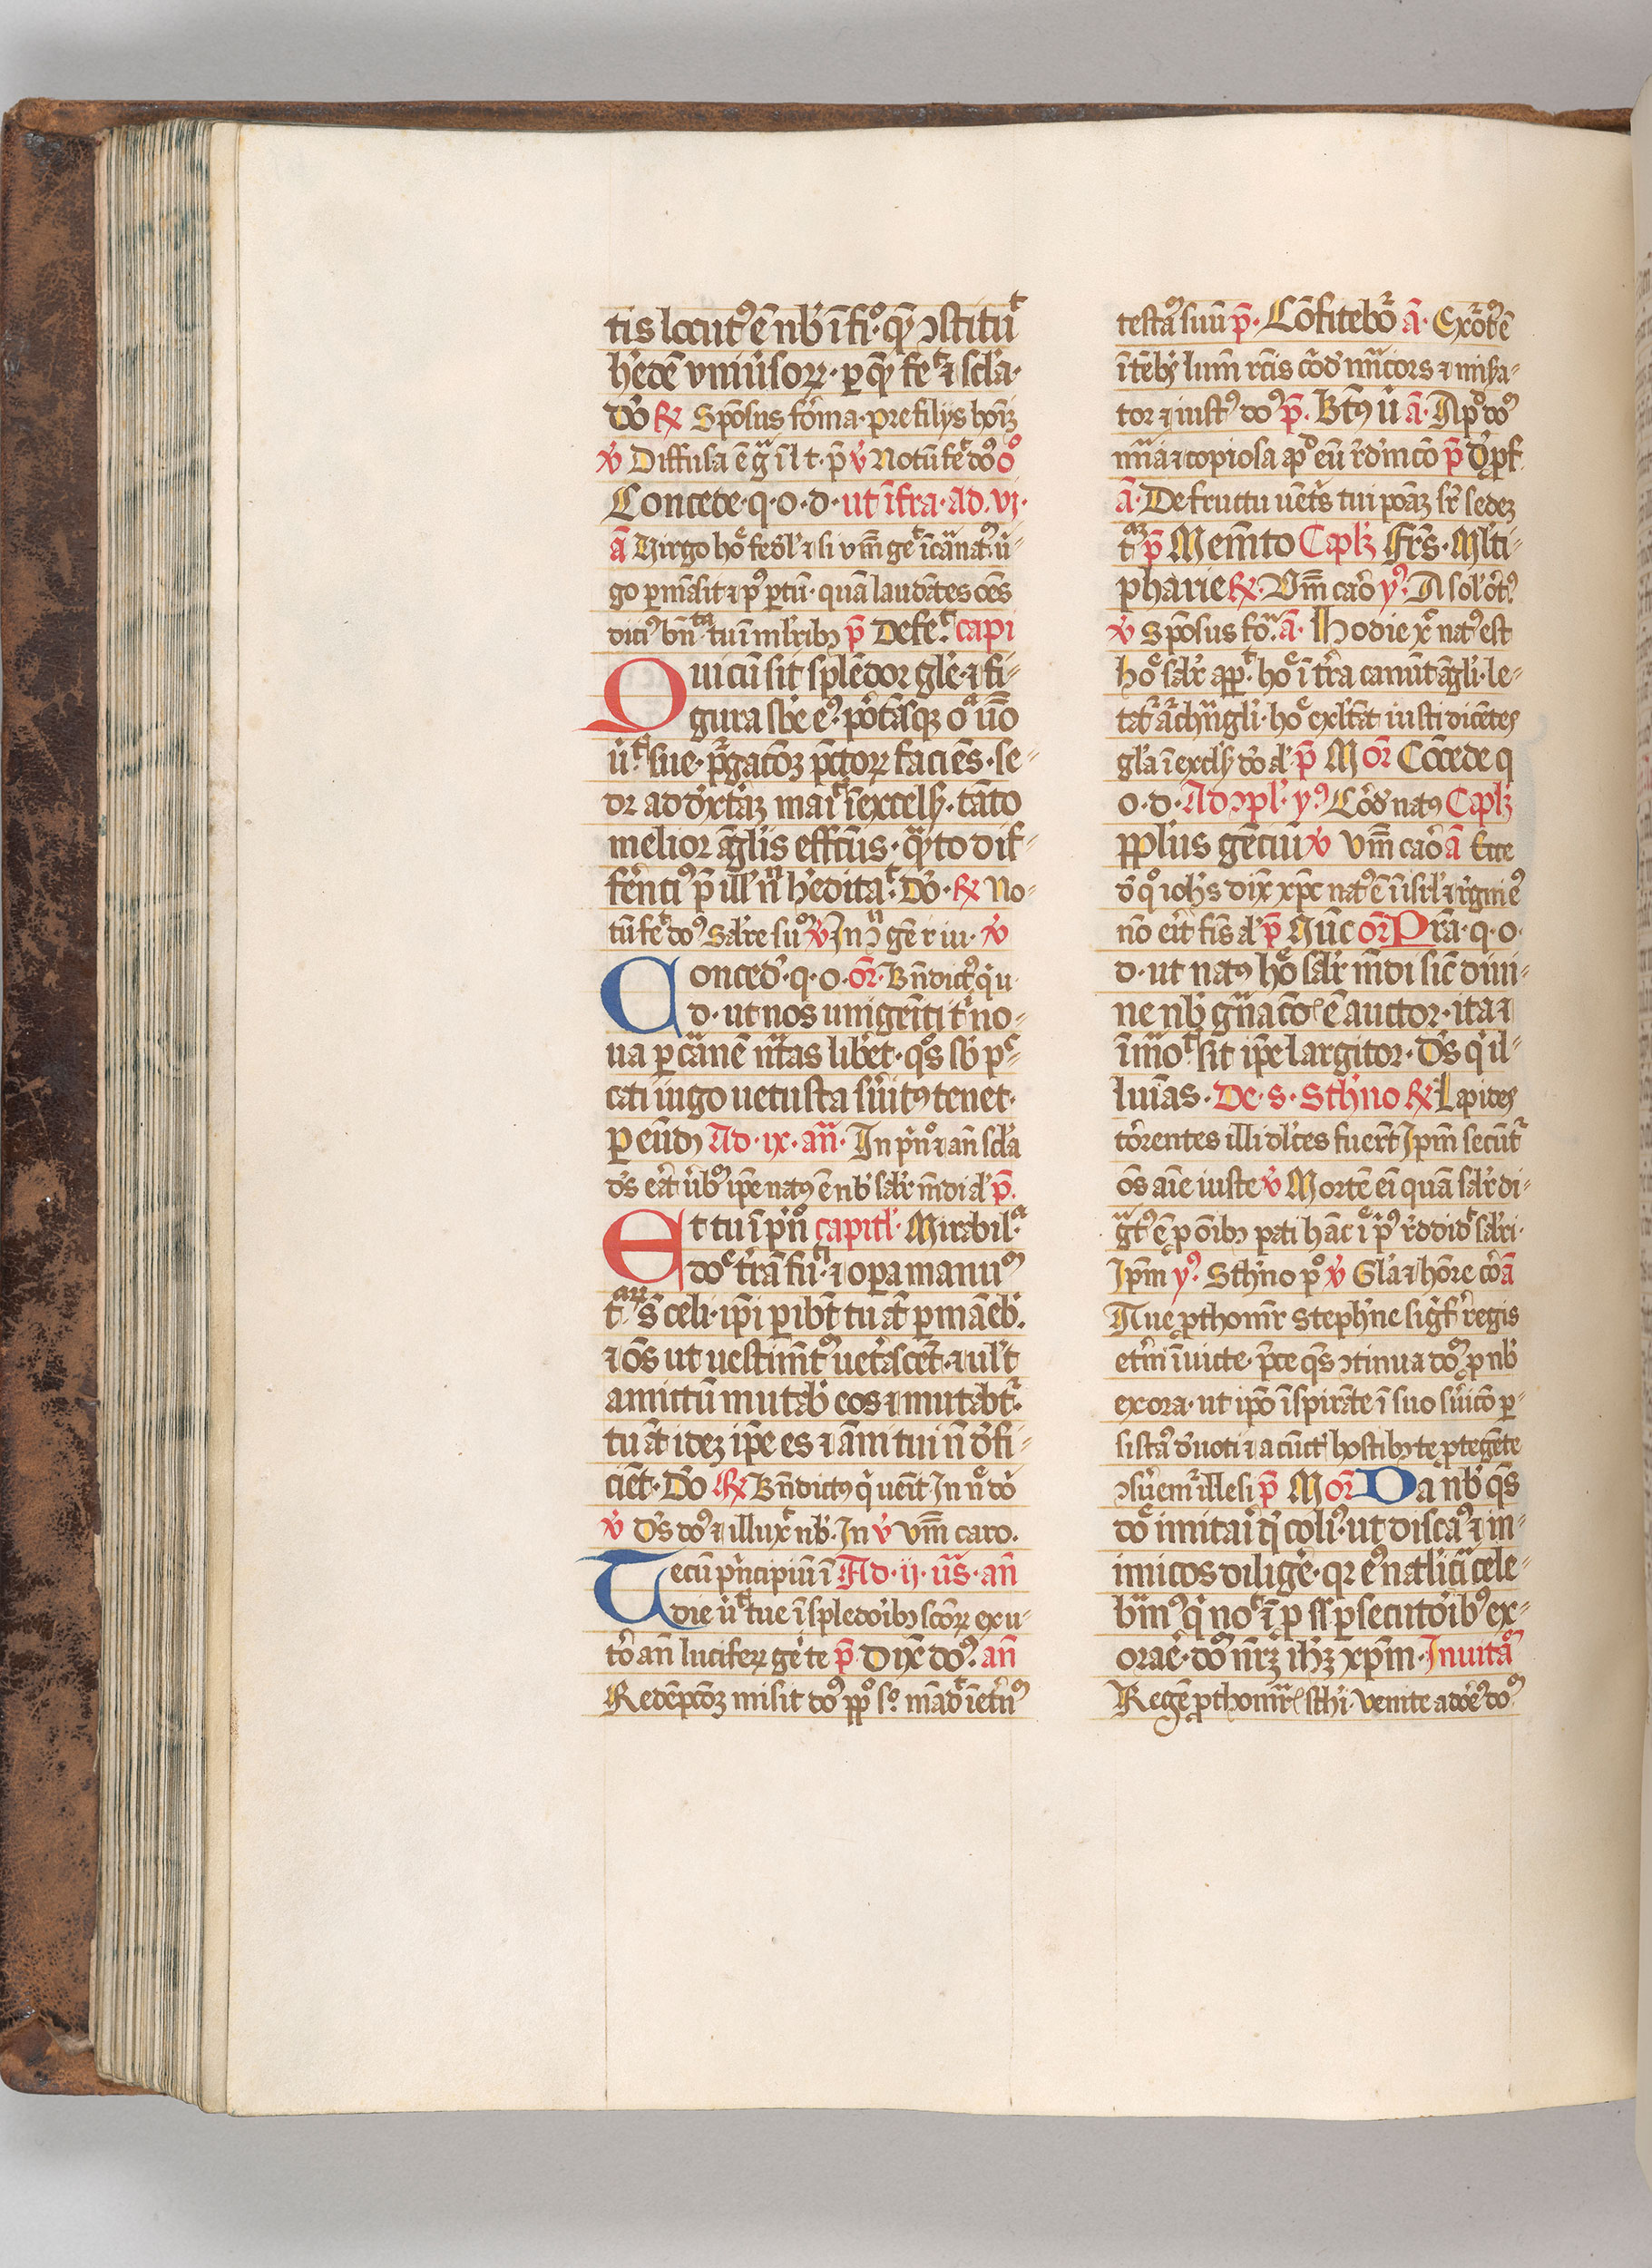 tis locut᷒ ē nb̄ ī fi͛o. quē ɔstituͭ
h'edē vniu'soꝝ. ꝑ quē feͨ ⁊ sc̄la.
Dō ℟ Spōsus fōrma. pre filijs hoīꝫ
℣ Diffusa ē gͣ ī l t. p̄ ℣ Notū feͨ do᷒ oͦ
Concede. q. o. d. ut īfra. ad. vj.
ā Virgo hoͩ fedl' ⁊ si vm̄ geͭ īcānatū ui-
go ꝑmāsit ⁊ p᷒ ꝑtū. quā laudātes oēs
dici᷒ bn̄ta tu ī ml'ribꝫ p̄ Defeͨ. capi
Qui cū sit splēdor gl'e. ⁊ fi-
gura sb'e e᷒. pōtāsqꝫ oͣ uērbo
ū tͥ sue. p̄gatōꝫ pctōꝝ faciēs. se-
dꝫ ad dextaꝫ maiͭ ī excelsꝭ. tāto
melior āglis effctus. quāto dif-
fērenti᷒ p̄ ill' nͣ h'editaͭ. Dō. ℟ No-
tū feͨ do᷒ Sal're suū ℣ In ɔͣ gē r iu. ℣
Conced'. q. o. or̄. Bn̄dict᷒ qͥ u
d. ut nos unigēniti tͥ no-
ua ꝑ cānē nātas libēt. qͦs sb̄ pͨ-
cati iugo uetusta s'uitꝰ tenet.
ꝑ eundꝫ Ad. ix. an̄. In pͥnͦ ⁊ an̄ sc̄la
d̄s erāt ūbū ip̄e natꝰ ē nb̄ sal'r mūdi al' p̄.
Et tu ī pͥnͦ capitl'. Mirabil'ͣ
doͤ trā fūͣ. ⁊ opa manuū
tͣꝝ s̄ celi. ip̄i ꝑibt tu āt ꝑmāeb̄.
⁊ oēs ut uestimt᷒ uetascet. ⁊ ul't
amictū mutab̄ eos ⁊ mutabt᷑.
tu āt ideꝫ ip̄e es ⁊ āni tui n̄ defi-
ciēt. Dō ℟ Bn̄dictꝰ qͥ uenit In nͦ dō
℣ D̄s do᷒ ⁊ illuxͭ nb̄. In ℣ vm̄ caro.
Tecū pͥncipiū ī Ad. ij. ūs. an̄
die ūtͥ tue ī spledoibꝫ scōꝝ ex u-
tō an̄ luciferꝝ geͥ te p̄ Dix̄ do᷒. an̄
Redēptōꝫ misit do᷒ ppͦ sͦ. mādͭ ī et'nū
testaͫ suū p̄. Cōfitebor ā. Exōrt᷒ ē
ī tēbꝭ lum̄ rc̄is cōrd' mi͞cors ⁊ miſa-
tor ⁊ iust᷒ do᷒ p̄. Bt̄us ū ā. Apͩ doͫ
mi͞a ⁊ copiosa apͩ eū rd'mcō p̄ D' pf
ā. De fructu uēt̄s tui ponāꝫ sr̄ sedeꝫ
tͣꝫ p̄ Memīto Caplꝫ Fr̄s. Ml'ti-
pharie ℟. Vm̄ carō ẏ. A sol' ort᷒
℣ Spōsus foͣ. ā. Hodie xͬ nat᷒ est
hoͩ sal'r appͭ. hoͩ ī t'ra canūt āgli. le-
tāt᷑ archāngli. hoͩ exl'tāt iusti dicētes
gl'a ī excls' dō al' p̄ M or̄ Cōcede q
o. d. Ad ɔpl'. ẏ. Cōrd' natꝰ Caplꝫ
Ppl'us gēciū ℣ vm̄ carō ā Ecce
d' qͦ ioh's dix̄ xp̄c nat᷒ ē ī isr'l ⁊ rͤgni e᷒
nō erit fīs al' p̄ Nūc or̄ Pr̄a. q. o.
d. ut natꝰ hoͩ sal'r mūdi sic diui-
ne nb̄ gn̄acōis ē auctor. ita ⁊
īmoͬ sit ip̄e largitor. D̄s qͥ il-
luīas. De. s. Sth'no ℟ Lapides
torentes illi dl'ces fuert Ip̄m secūtͬ
oēs aīe iuste ℣ Mortē eī quā sal'r di-
gͣt᷒ ē ꝓ oībꝫ pati hāc īͤ pͥ᷒ r'ddidͭ sal'ri.
Ip̄m ẏ. Sth'no pͦ ℣ Gl'a ⁊ hōre cōrā
Aue ꝓthomr̄ Steph'ne sigf' regis
et'ni īuicte. p̄ce qs̄ ɔtinua doͫ ꝓ nb̄
exora. ut ip̄o īspirāte ī suo s'uicō ꝑ-
sistaꝫ d'uoti ⁊ a cūct' hostibꝫ te ꝓtegēte
ɔsu'emr̄ illesi p̄ M or̄ Da nb̄ qs̄
doͤ imitari qͩ coli᷒. ut disca᷒ ⁊ in-
imicos dilige'. qꝛ e᷒ natlicia cele-
bͣm᷒ qͥ nouͭ ⁊ ꝓ ss̄ ꝑsecutoibꝰ ex-
orae'. doͫ nrꝫ ih'ꝫ xp̄m. Inuitāͦ
Regē ꝓthomr̄ꝭ sth'i. venite adōre᷒ doͫ